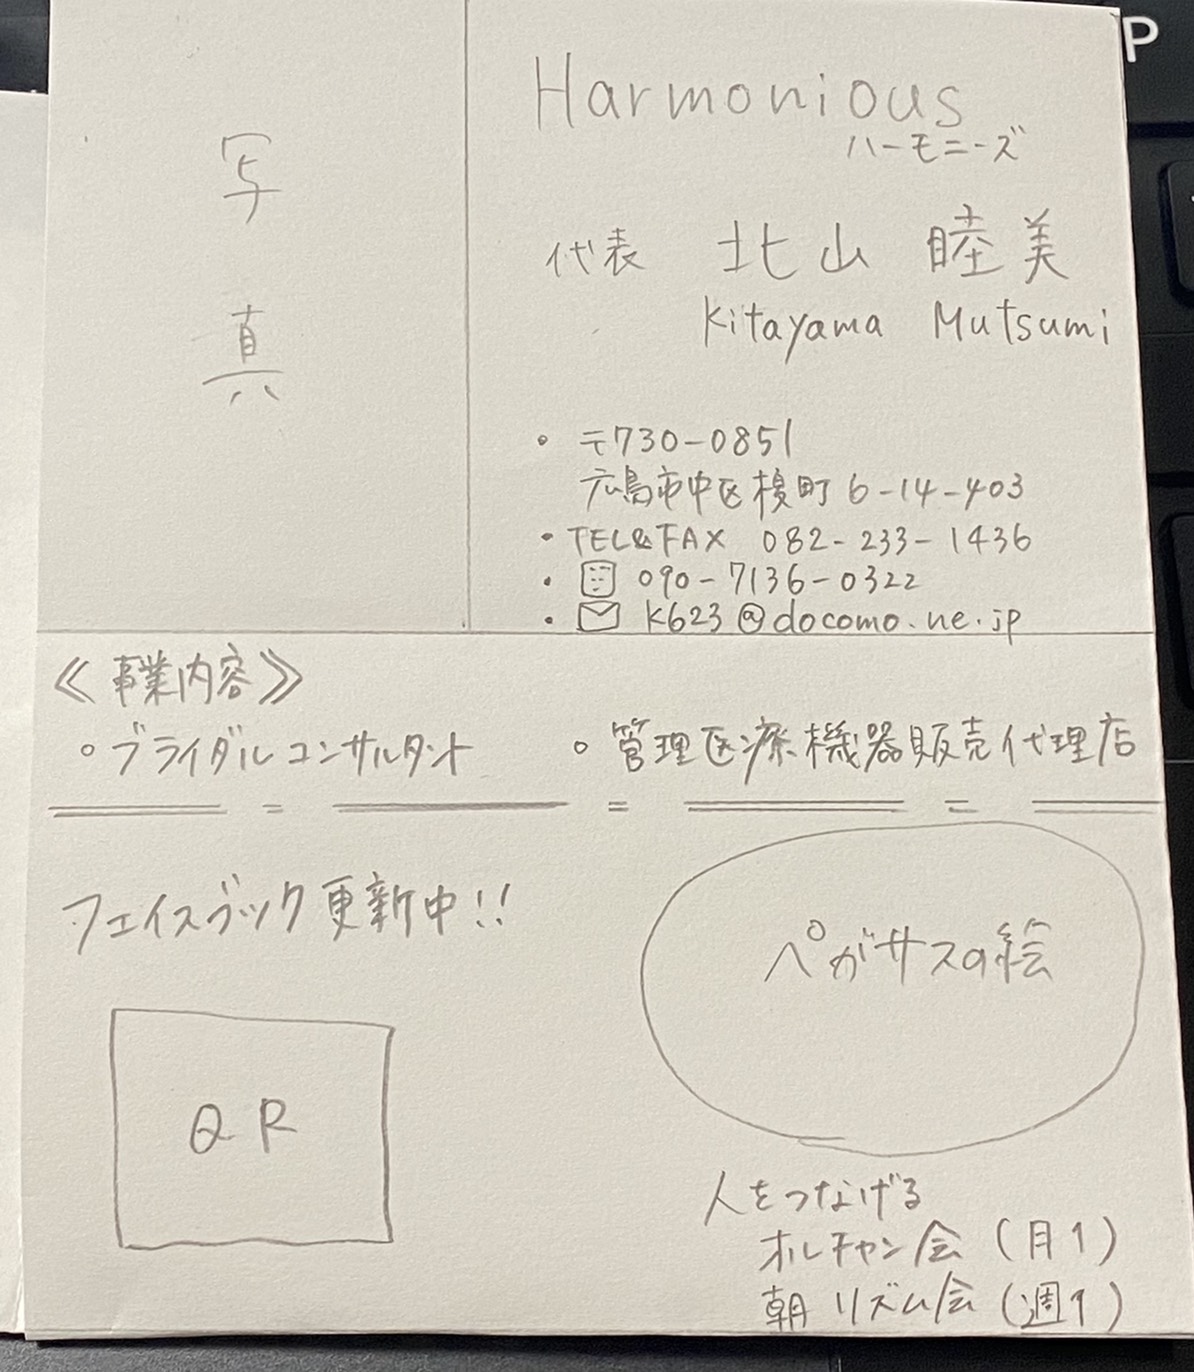 写真
Harmonious
ハーモニーズ
代表 北山 睦美
Kitayama Mutsumi
・〒730-0851
広島市中区榎町6-14-403
・TEL&FAX 082-233-1436
・090-7136-0322
・k623@docomo.ne.jp
≪事業内容≫
○ブライダルコンサルタント ○管理医療機器販売代理店
フェイスブック更新中!!
ペガサスの絵
QR
人をつなげる
オルチャン会(月1)
朝リズム会(週1)
P